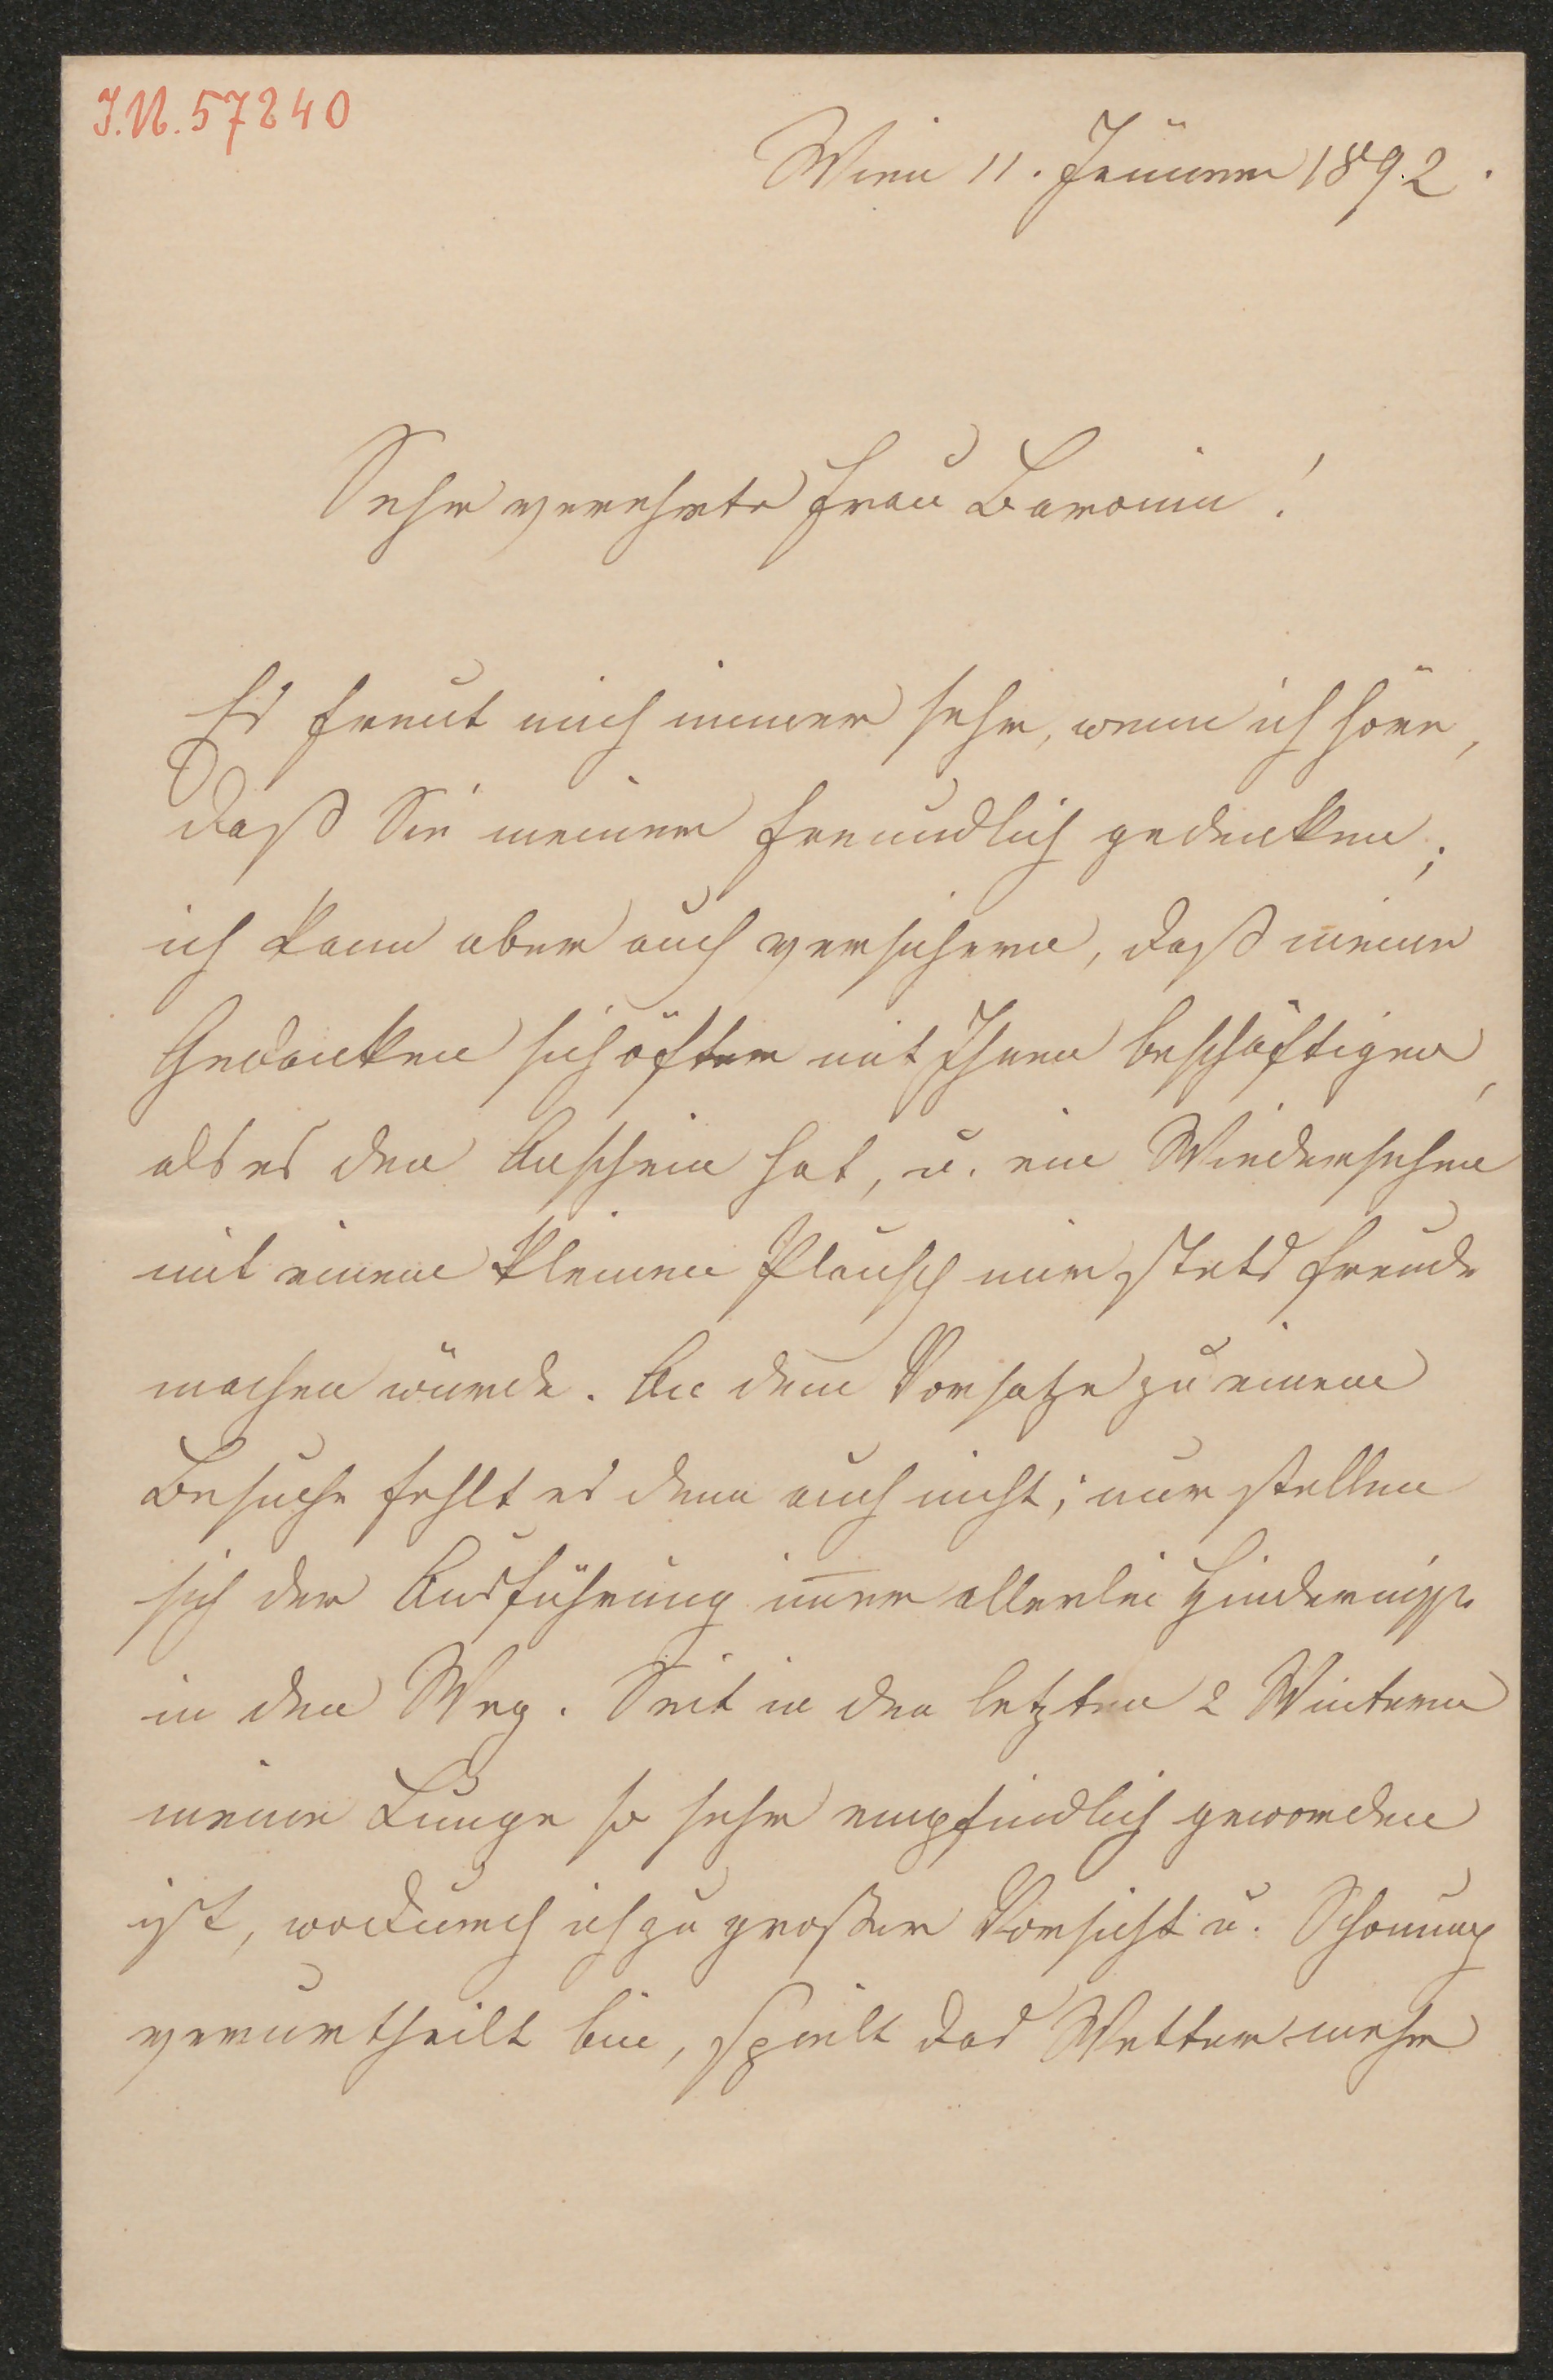 I.N. 57240
Wien 11. Jänner 1892.
Sehr verehrte Frau Baronin!
Es freut mich immer sehr, wenn ich höre,
daß Sie meiner freundlich gedenken;
ich kann aber auch versichern, daß meine
Gedanken sich öfter mit Ihnen beschäftigen,
als es den Anschein hat, u. ein Wiedersehen
mit einem kleinen Plausch mir stets Freude
machen würde. An dem Vorsatze zu einem
Besuche fehlt es denn auch nicht; nur stellen
sich der Ausführung im̅er allerlei Hindernisse
in den Weg. Seit in den letzten 2 Wintern
meine Lunge so sehr empfindlich geworden
ist, wodurch ich zu großer Vorsicht u. Schonung
verurtheilt bin, spielt das Wetter mehr